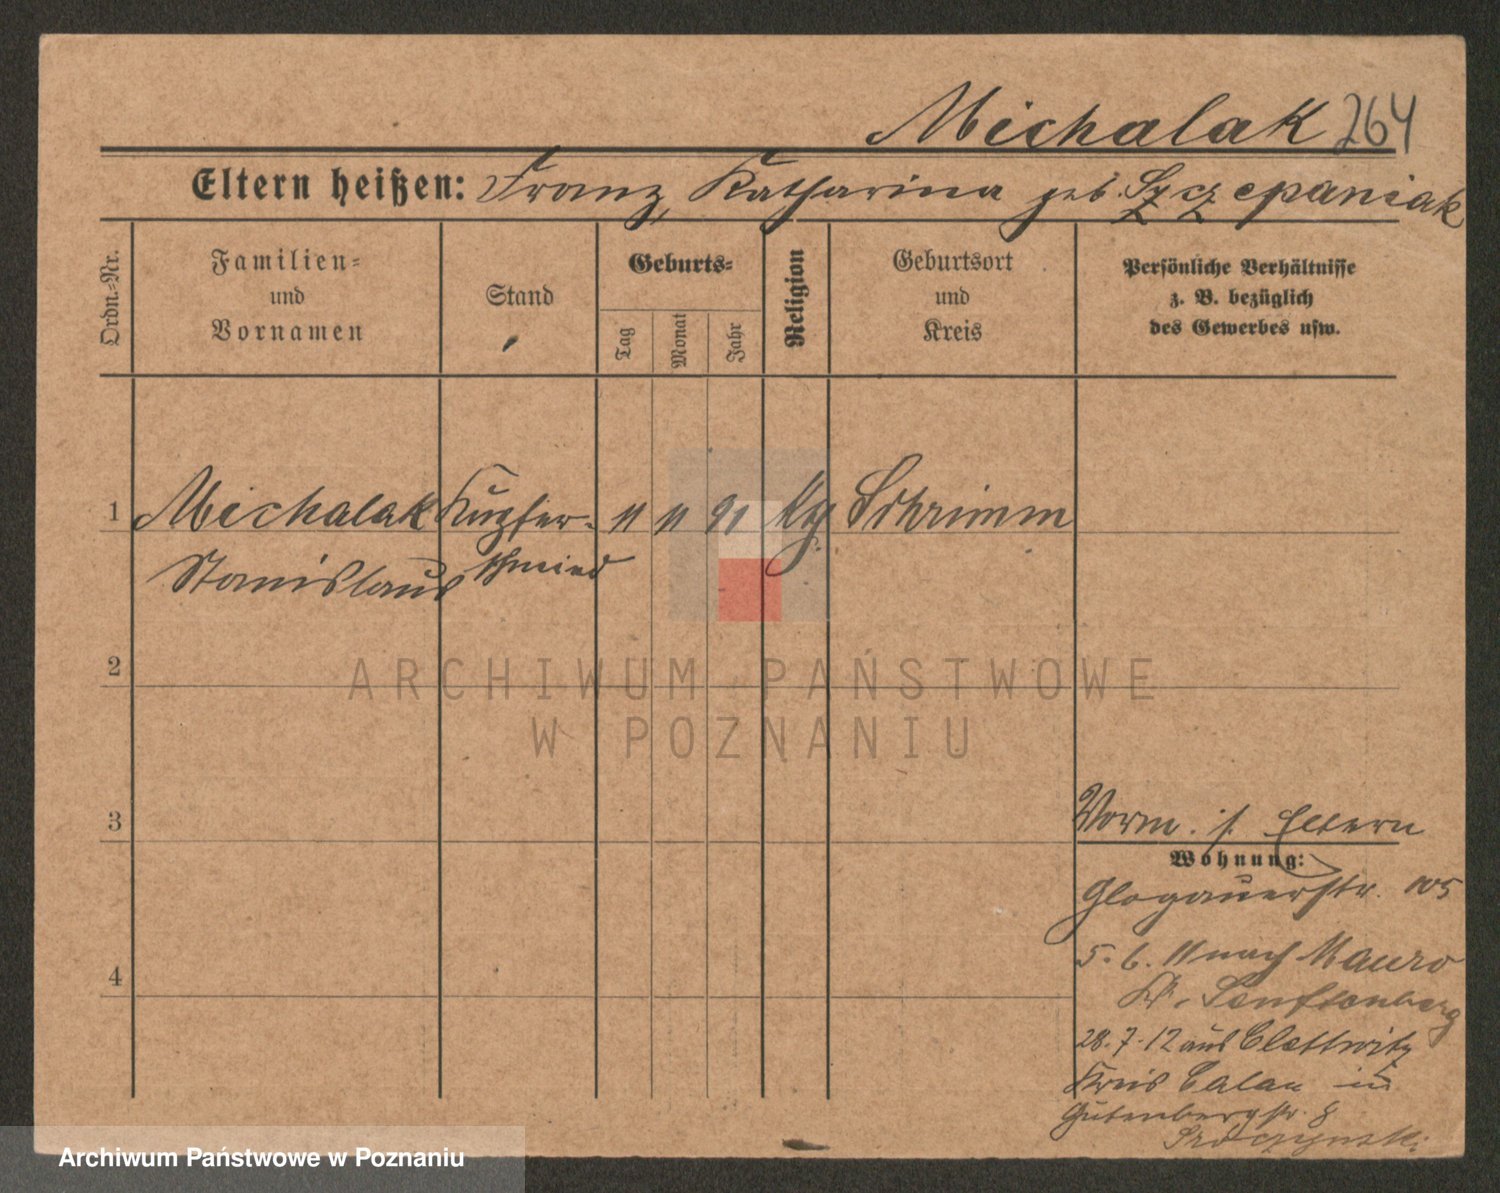 Michalak 264
Eltern heißen: Franz, Katharina geb. Szczepaniak
Ordn.-Nr.
Familien-
und
Vornamen
Stand
Geburts-
Tag
Monat
Jahr
Religion
Geburtsort
und
Kreis
Persönliche Verhältnisse
z. B. bezüglich
des Gewerbes usw.
1 Michalak Kupfer- 11 11 91 Schrimm
Stanislaus schmied
2
ARCHIWUM PAŃSTWOWE
W POZNANIU
3
Vorm. s. Eltern
Wohnung:
Glogauerstr. 105
4
5. 6. 11 nach
Kr. Senftenberg
28. 7. 12 aus Clettwitz
Kreis Calau in
Gutenbergstr. 8
Archiwum Państwowe w Poznaniu